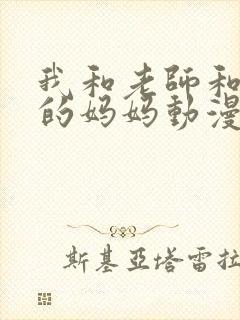 我和老師和
的妈妈動漫
斯基亞塔雷拉